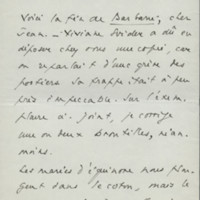 Voici la fin de Barbarie, cher
Jean. — Viviane Forrester a dû en
déposer chez vous une copie, car
on reparlait d'une grève des
postiers. La frappe était à peu
près impeccable. Sur l'exem-
plaire ci-joint, je corrige
une ou deux broutilles, néan-
moins.
Les marées d'équinoxe nous plon-
gent dans le coton, mais le